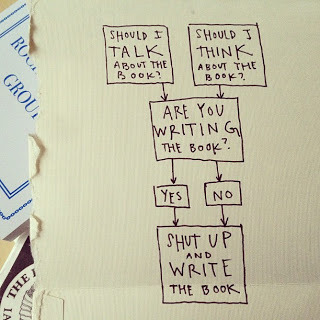 SHOULD I
TALK
ABOUT THE
BOOK?
SHOULD I
THINK
ABOUT THE
BOOK?
ARE YOU
WRITING
THE BOOK?
YES
NO
SHUT UP
AND
WRITE
THE BOOK
GROUP